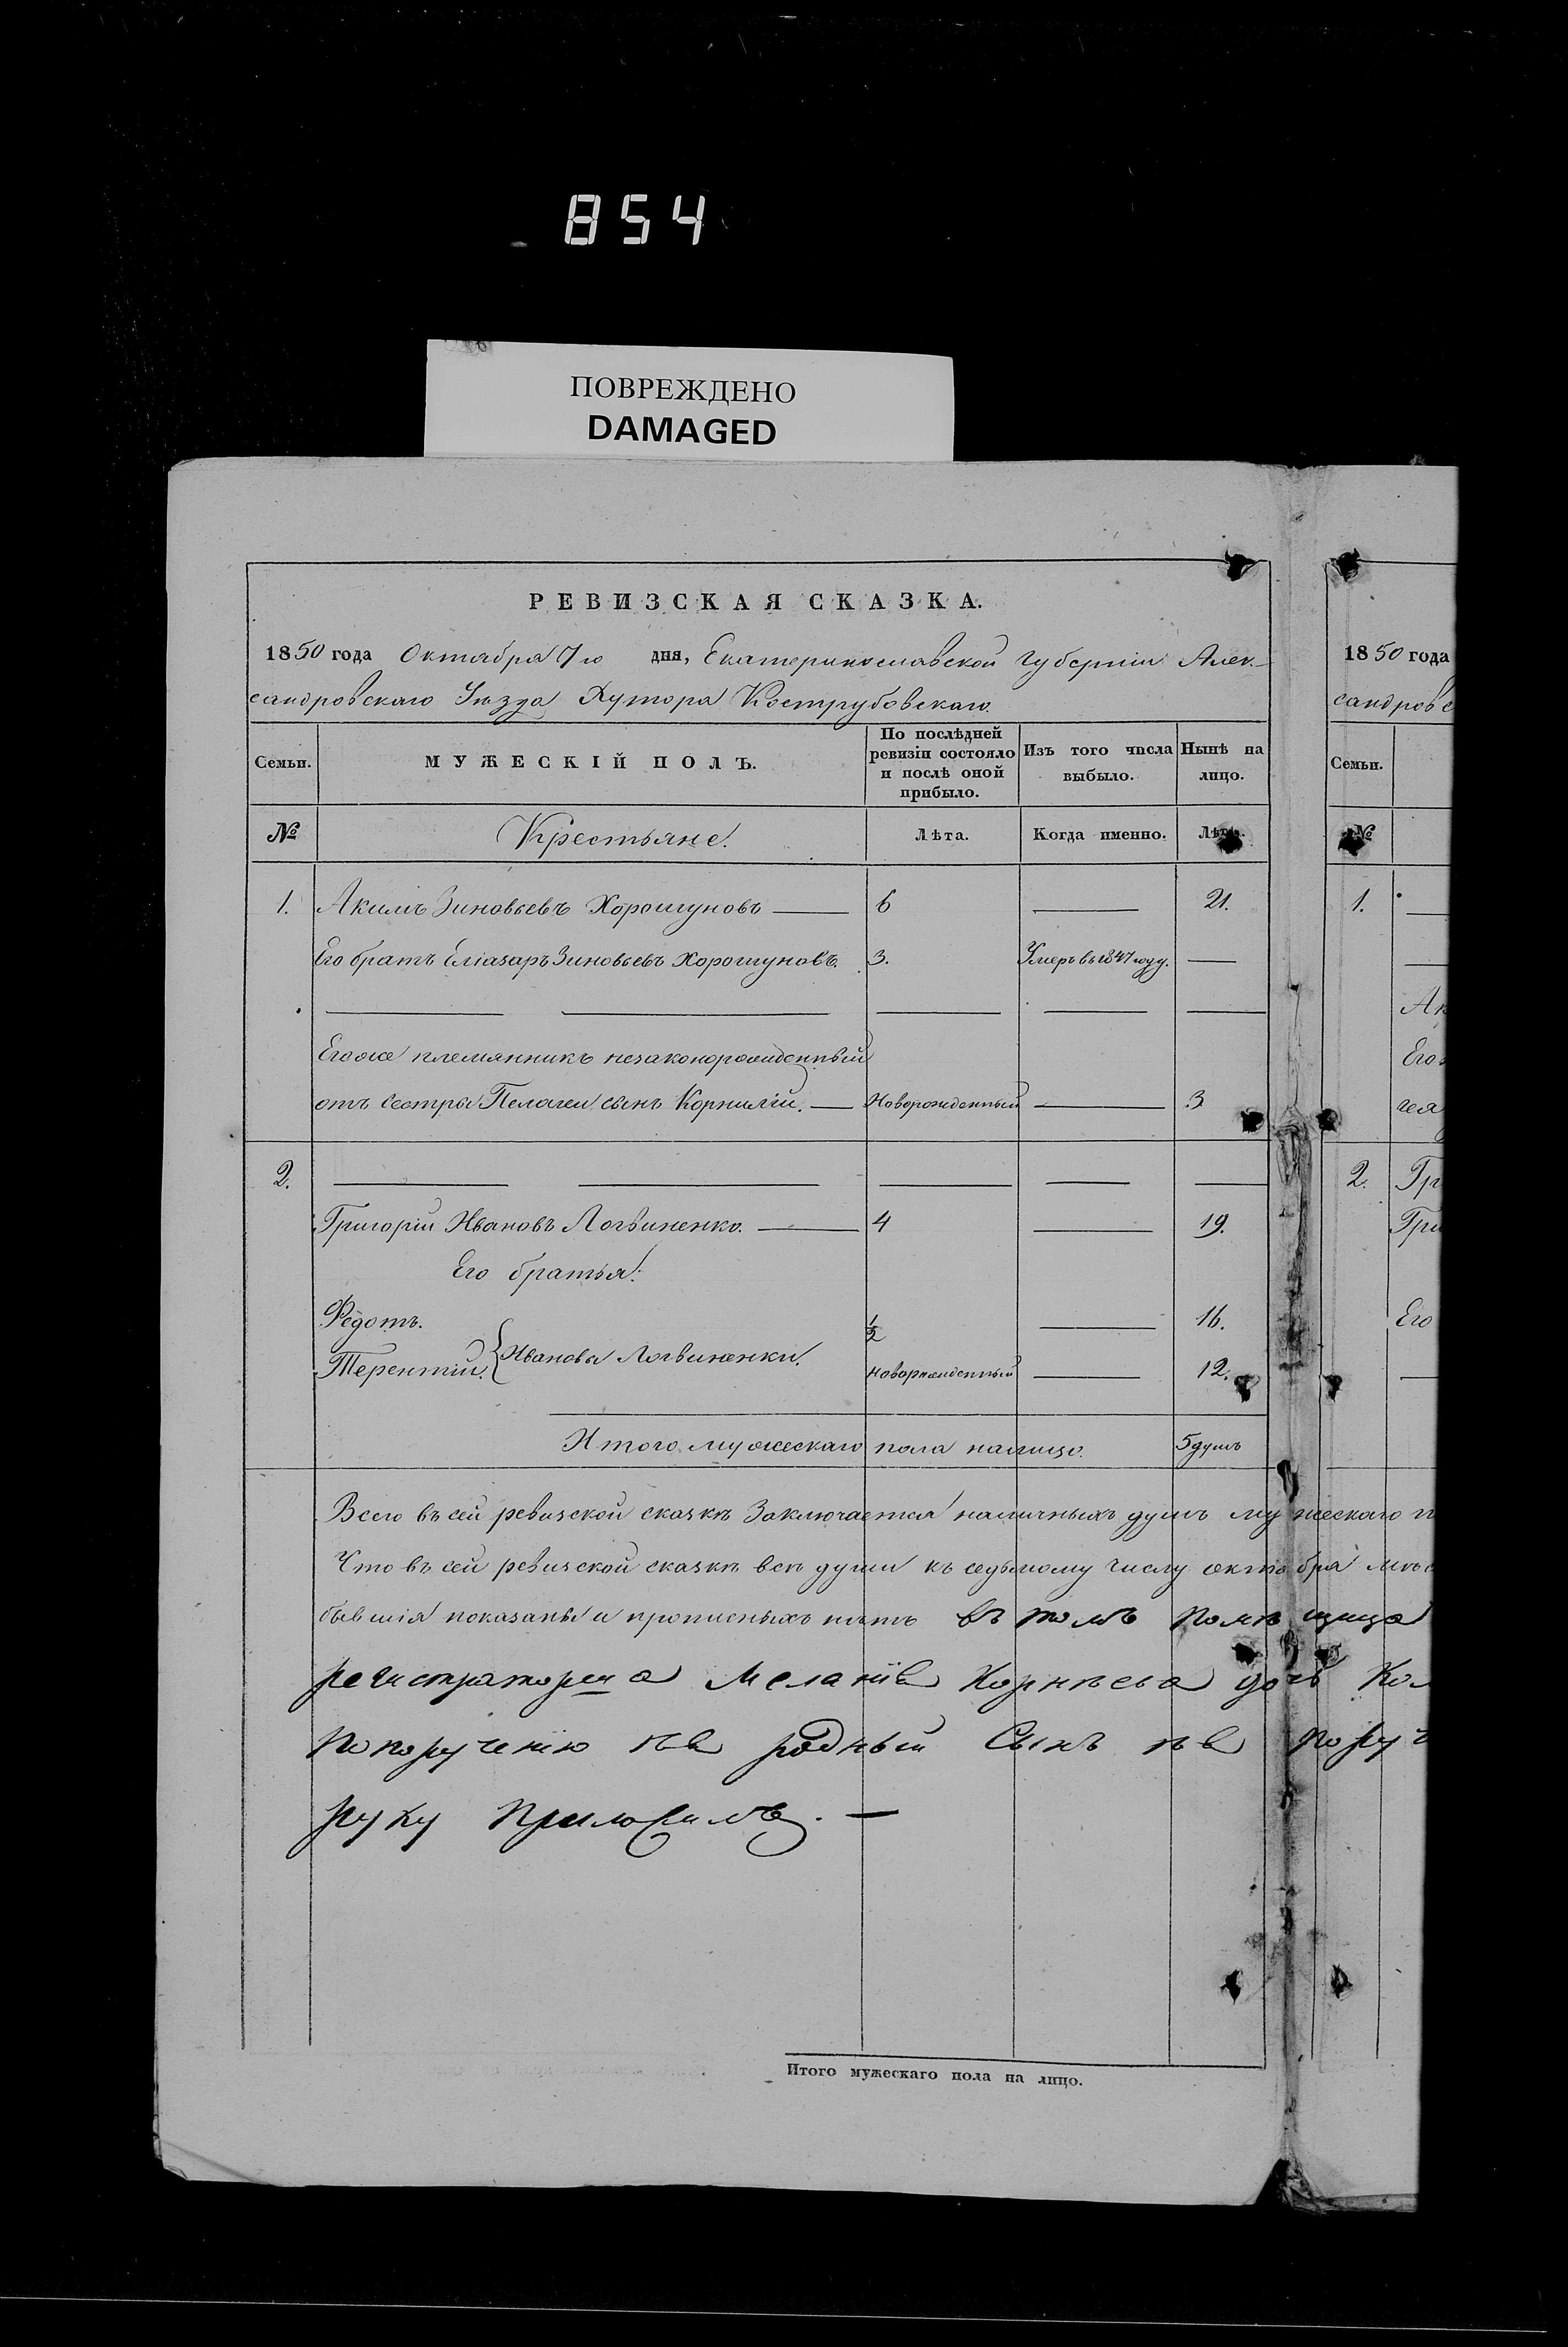 854
ПОВРЕЖДЕНО
DAMAGED
РЕВИЗСКАЯ СКАЗКА.
1850 года Октября 7го дня, Екатеринославской губерніи Алек-
сандровскаго Уѣзда Хутора Кострубовскаго.
Семьи. МУЖЕСКІЙ ПОЛЪ. По послѣдней ревизіи состояло и послѣ оной прибыло. Изъ того числа выбыло. Нынѣ на лицо.
№ Крестьяне. Лѣта. Когда именно. Лѣта.
1. Акимъ Зиновьевъ Хорошуновъ — 6 — 21.
Его братъ Еліазаръ Зиновьевъ Хорошуновъ. 3. Умеръ въ 1847 году. —
Его же племянникъ незаконорожденный
отъ сестры Пелагеи сынъ Корнилій. — Новорожденный — 3
2.
Григорій Ивановъ Логвиненко. — 4 — 19.
Его братья:
Федотъ. ½ — 16.
Терентій. { Ивановы Логвиненки. новорожденный — 12.
Итого мужескаго пола налицо. 5 душъ
Всего въ сей ревизской сказкѣ Заключается наличныхъ душъ мужескаго п
Что въ сей ревизской сказкѣ всѣ души къ седьмому числу октобря мѣс
бывшія показаны и прописныхъ нѣтъ въ томъ помѣщица
регистраторша Меланія Корнѣева дочь Кол
по порученію ѣя родный Сынъ ѣя поруч
руку Приложилъ. —
Итого мужескаго пола на лицо.
1850 года
сандровс
Семьи.
№
1.
Ак
Его
гея
2. Гр
Гри
Его